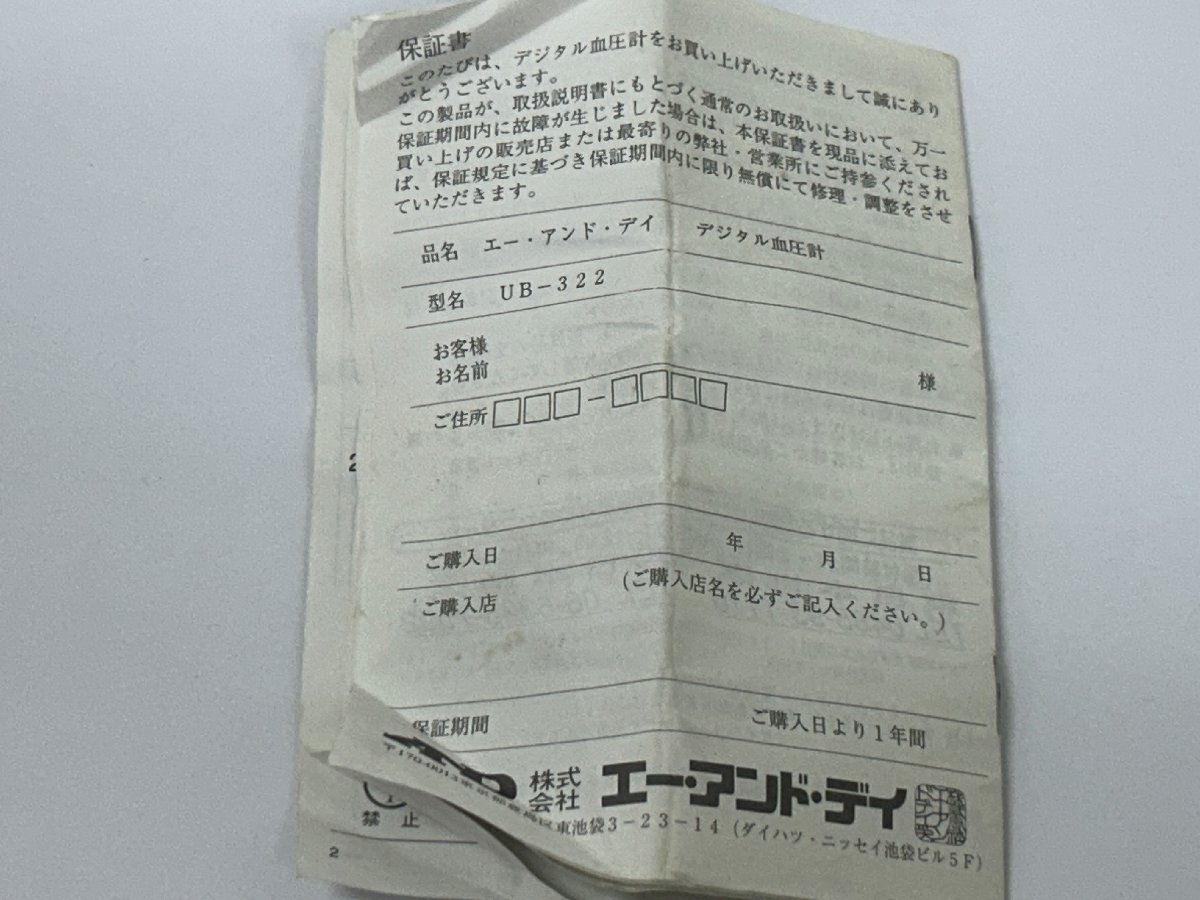 保証書
このたびは、デジタル血圧計をお買い上げいただきまして誠にあり
がとうございます。
この製品が、取扱説明書にもとづく通常のお取扱いにおいて、万一
保証期間内に故障が生じました場合は、本保証書を現品に添えてお
買い上げの販売店または最寄りの弊社・営業所にご持参くだされ
ば、保証規定に基づき保証期間内に限り無償にて修理・調整をさせ
ていただきます。
品名 エー・アンド・デイ デジタル血圧計
型名 UB-322
お客様
お名前 様
ご住所 □□□-□□□□
ご購入日 年 月 日
ご購入店 (ご購入店名を必ずご記入ください。)
保証期間 ご購入日より1年間
株式
会社 エー・アンド・デイ
〒170-0013 東京都豊島区東池袋3-23-14 (ダイハツ・ニッセイ池袋ビル5F)
禁 止
2
2